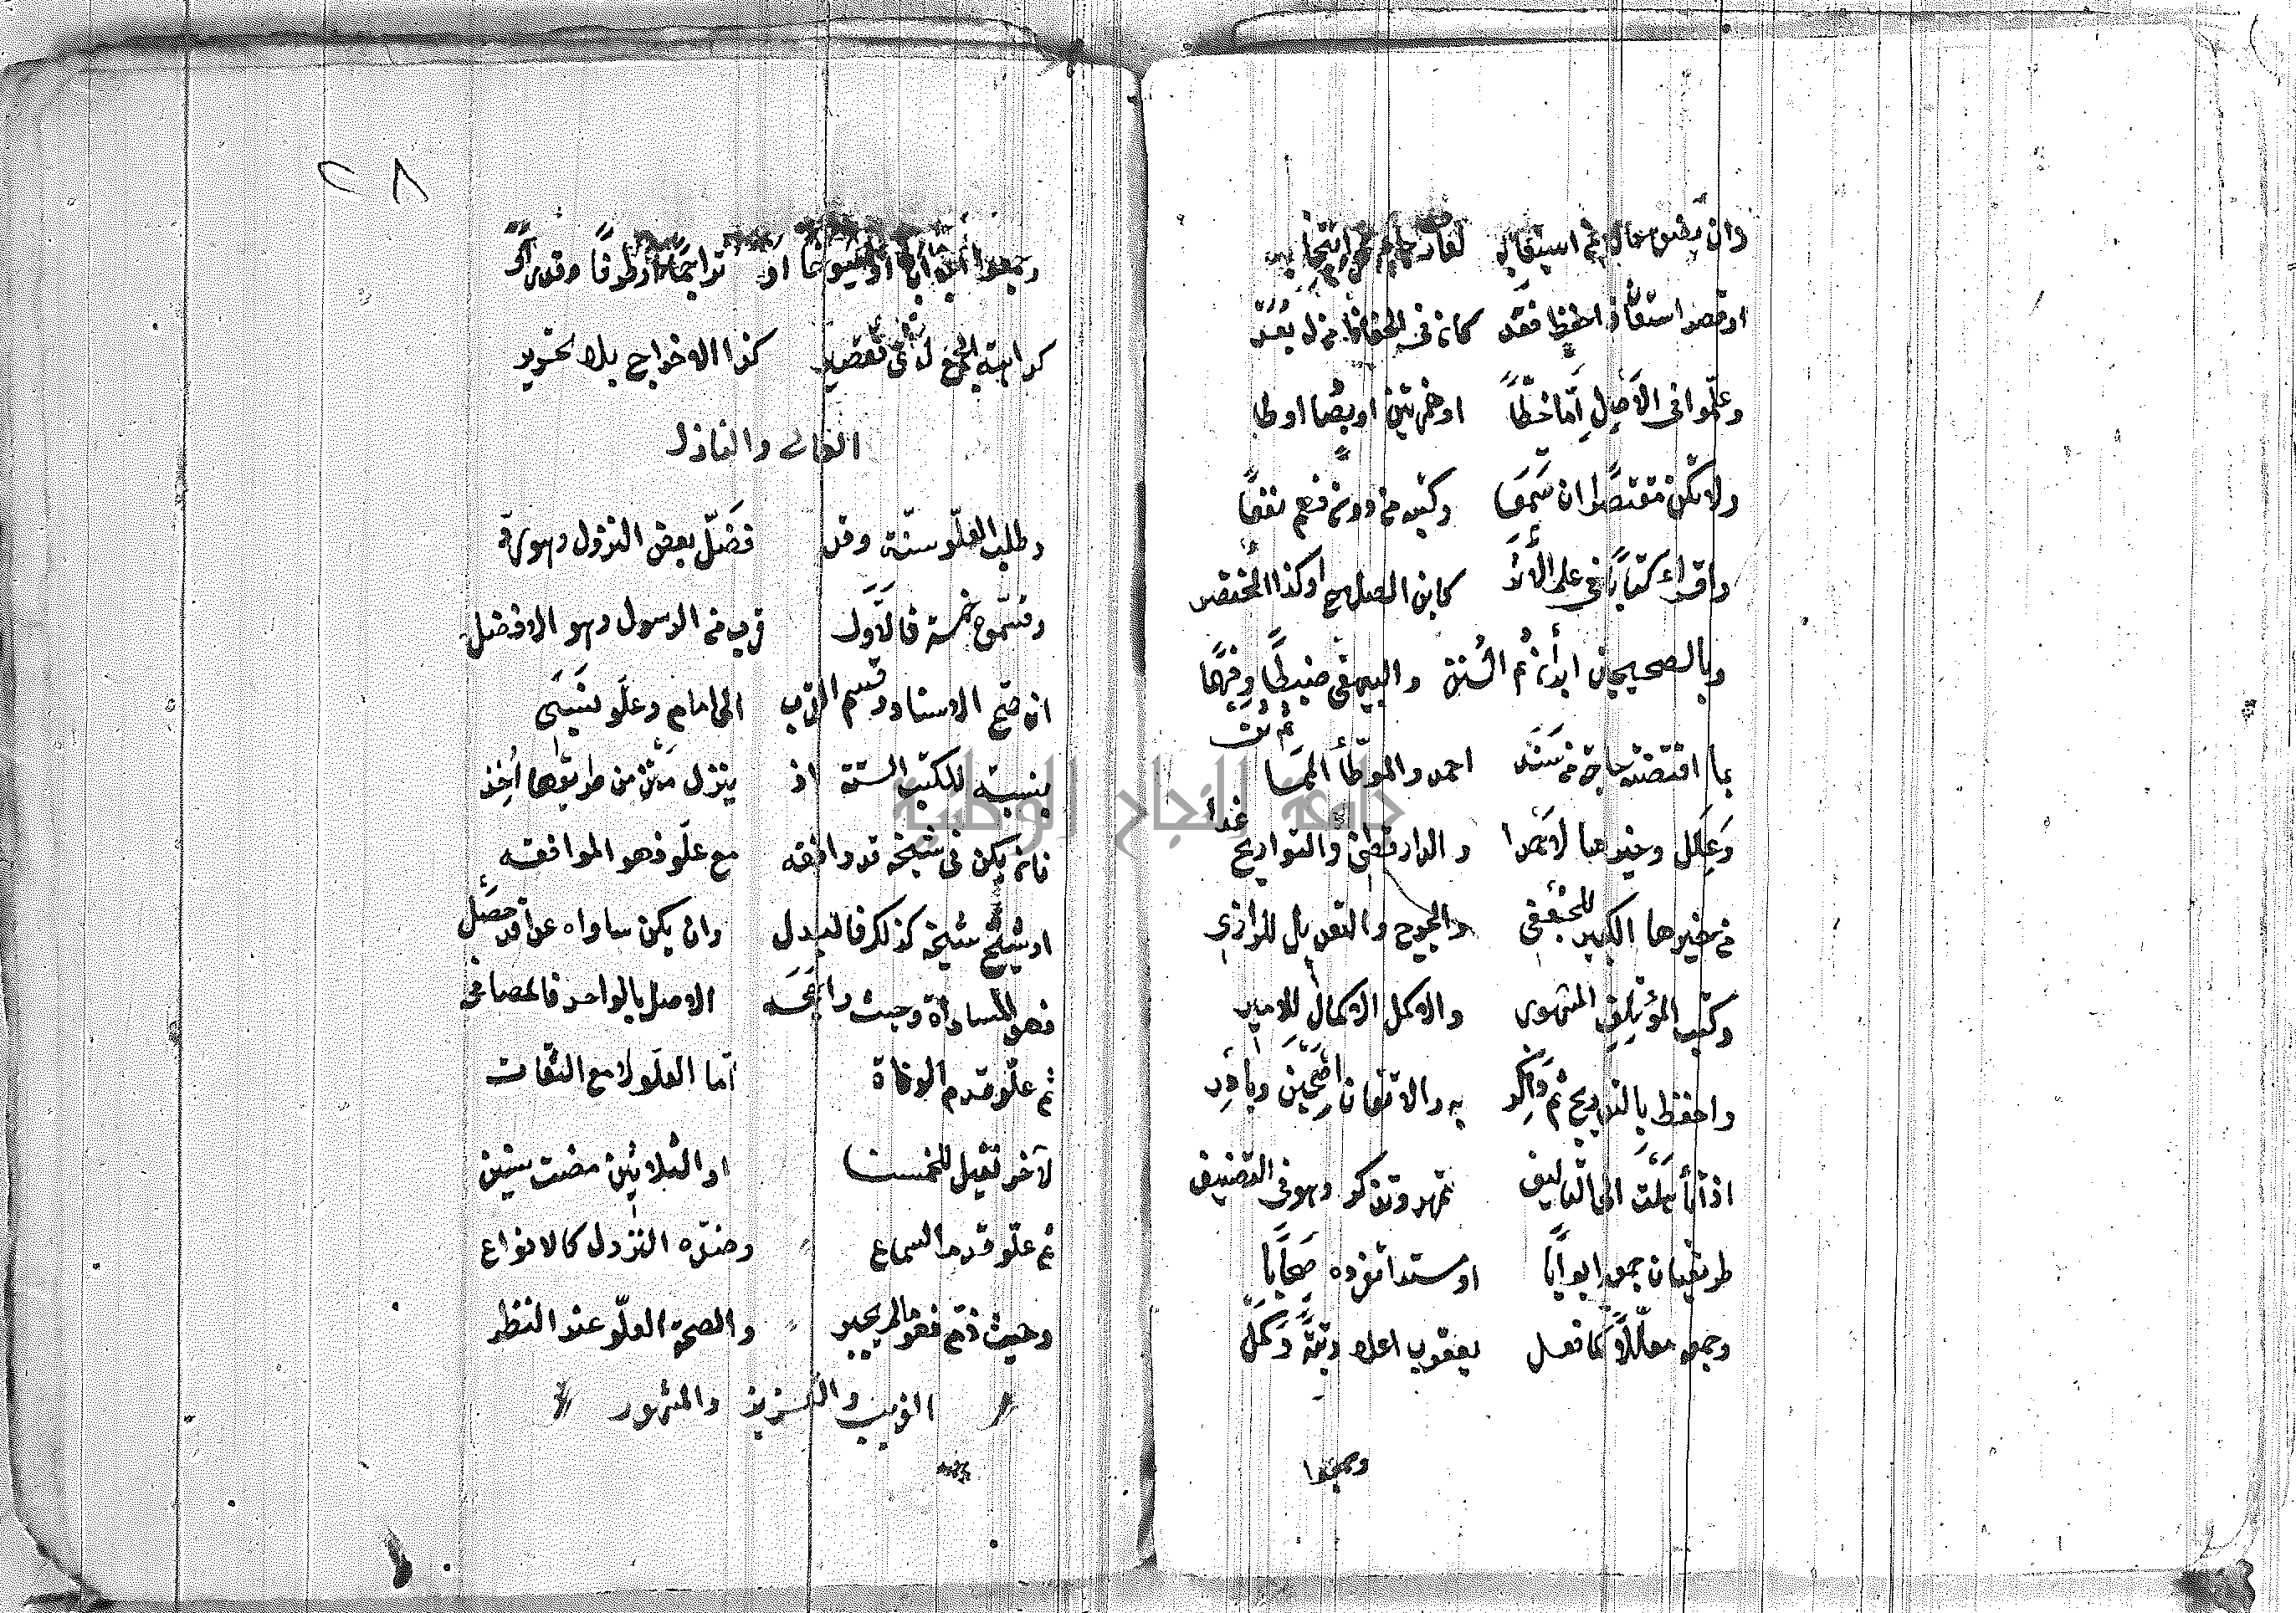 وان يضق حال عن استيعابه لعارف في انتخابه
او قصر استعان ذا حفظ فقد كان في الحفاظ من له يعد
وعلموا في الاصل اما خطا او همزتين او بصا او طا
ولا تكن مقتصرا ان تسمعا وكتبه من دون فهم نفعا
واقرا كتابا في علوم الاثر كابن الصلاح او كذا المختصر
وبالصحيحين ابدأن ثم السنن والبيهقي ضبطا وفهما ثم ثن
بما اقتضته حاجة من مسند احمد والموطأ الممهد
وعلل وخيرها لاحمدا والدارقطني والتواريخ غدا
من خيرها الكبير للجعفي والجرح والتعديل للرازي
وكتب المؤتلف المشهور والاكمل الاكمال للامير
واحفظ بالتدريج ثم ذاكر به والاتقان اصحبن وبادر
اذا تأهلت الى التأليف تمهر وتذكر وهو في التصنيف
طريقتان جمعه ابوابا او مسندا تفرده صحابا
وجمعه معللا كما فعل يعقوب اعلا رتبة وكمل
وجمعوا
٢٨
وجمعوا ابوابا او شيوخا او تراجما او طرقا وقد رأوا
كراهة الجمع لذي تقصير كذا الاخراج بلا تحرير
العالي والنازل
وطلب العلو سنة وقد فضل بعض النزول وهو رد
وقسموه خمسة فالاول قرب من الرسول وهو الافضل
ان صح الاسناد وقسم القرب الى امام وعلو نسبي
بنسبة للكتب الستة اذ ينزل متن من طريقها اخذ
فان يكن في شيخه قد وافقه مع علو فهو الموافقه
او شيخ شيخه كذلك فالبدل وان يكن ساواه عدا قد حصل
فهو المساواة وحيث راجحه الاصل بالواحد فالمصافحه
ثم علو قدم الوفاة اما العلو لا مع التفات
لآخر فقيل للخمسينا او الثلاثين مضت سنين
ثم علو قدم السماع وضده النزول كالانواع
وحيث ذم فهو ما لم يجبر والصحة العلو عند النظر
الغريب والعزيز والمشهور